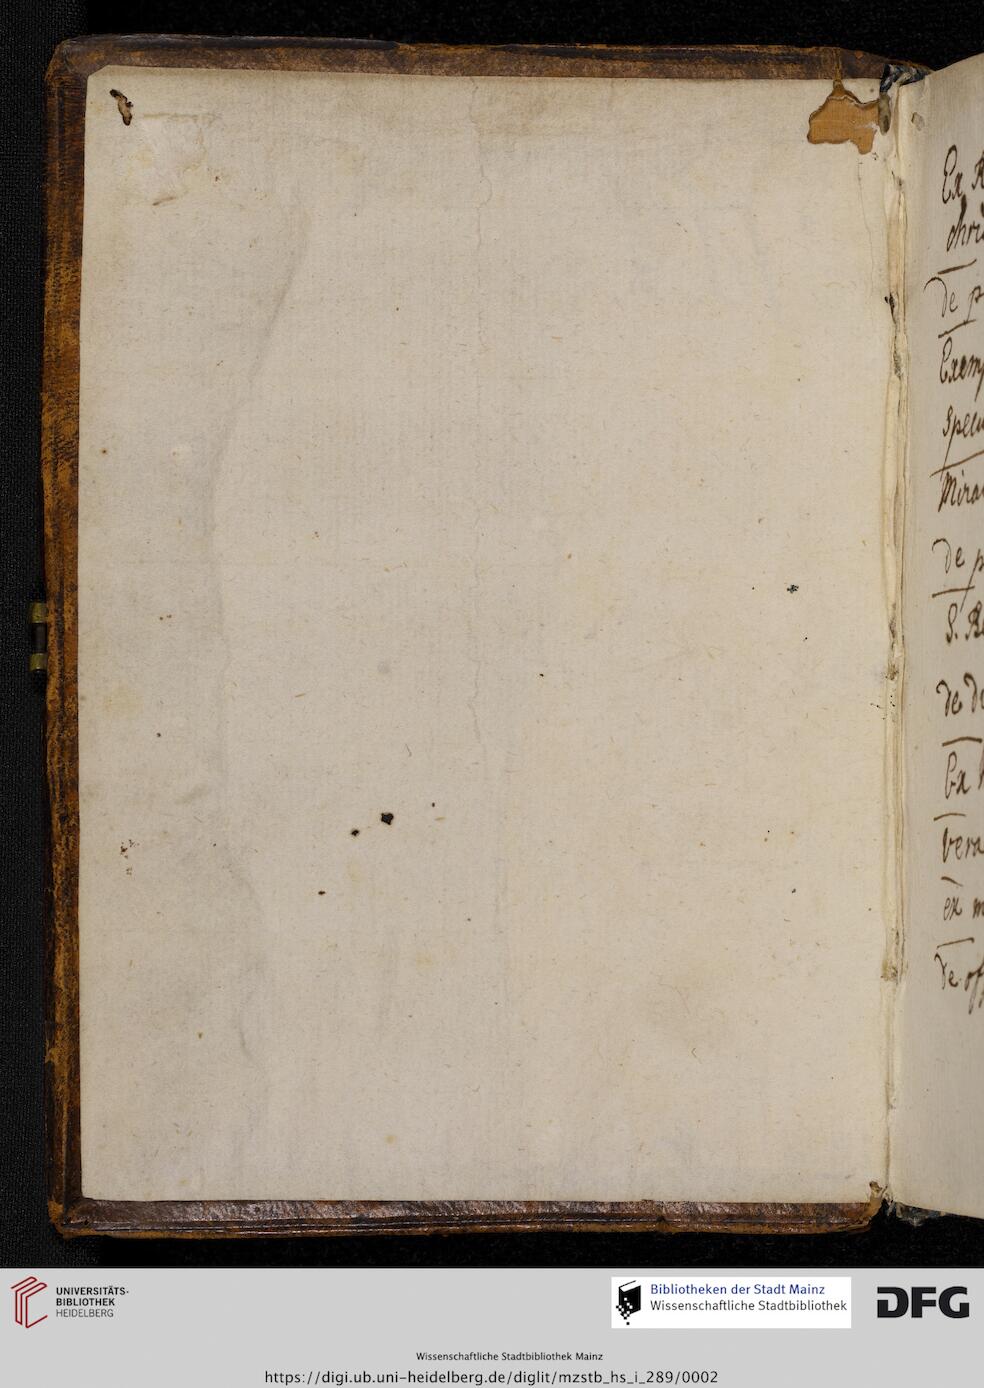 Ex
de p
Exem
Spec
Mira
de p
S. Re
de de
Ex
vera
ex m
de off
UNIVERSITÄTS-
BIBLIOTHEK
HEIDELBERG
Bibliotheken der Stadt Mainz
Wissenschaftliche Stadtbibliothek
DFG
Wissenschaftliche Stadtbibliothek Mainz
https://digi.ub.uni-heidelberg.de/diglit/mzstb_hs_i_289/0002